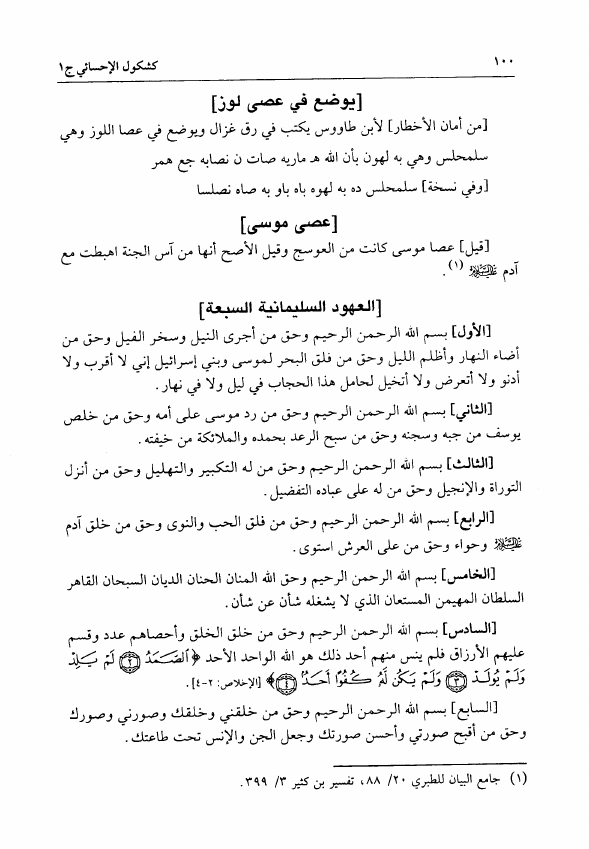 ١٠٠ كشكول الإحسائي ج١
[يوضع في عصى لوز]
[من أمان الأخطار] لأبن طاووس يكتب في رق غزال ويوضع في عصا اللوز وهي
سلمحلس وهي به لهون بأن الله هـ ماريه صات ن نصابه جع همر
[وفي نسخة] سلمحلس ده به لهوه باه باو به صاه نصلسا
[عصى موسى]
[قيل] عصا موسى كانت من العوسج وقيل الأصح أنها من آس الجنة اهبطت مع
آدم عليه السلام (١).
[العهود السليمانية السبعة]
[الأول] بسم الله الرحمن الرحيم وحق من أجرى النيل وسخر الفيل وحق من
أضاء النهار وأظلم الليل وحق من فلق البحر لموسى وبني إسرائيل إني لا أقرب ولا
أدنو ولا أتعرض ولا أتخيل لحامل هذا الحجاب في ليل ولا في نهار.
[الثاني] بسم الله الرحمن الرحيم وحق من رد موسى على أمه وحق من خلص
يوسف من جبه وسجنه وحق من سبح الرعد بحمده والملائكة من خيفته.
[الثالث] بسم الله الرحمن الرحيم وحق من له التكبير والتهليل وحق من أنزل
التوراة والإنجيل وحق من له على عباده التفضيل.
[الرابع] بسم الله الرحمن الرحيم وحق من فلق الحب والنوى وحق من خلق آدم
عليه السلام وحواء وحق من على العرش استوى.
[الخامس] بسم الله الرحمن الرحيم وحق الله المنان الحنان الديان السبحان القاهر
السلطان المهيمن المستعان الذي لا يشغله شأن عن شأن.
[السادس] بسم الله الرحمن الرحيم وحق من خلق الخلق وأحصاهم عدد وقسم
عليهم الأرزاق فلم ينس منهم أحد ذلك هو الله الواحد الأحد ﴿ٱلصَّمَدُ ۝٢ لَمْ يَلِدْ
وَلَمْ يُولَدْ ۝٣ وَلَمْ يَكُن لَّهُ كُفُوًا أَحَدٌ ۝٤﴾ [الإخلاص: ٢-٤].
[السابع] بسم الله الرحمن الرحيم وحق من خلقني وخلقك وصورني وصورك
وحق من أقبح صورتي وأحسن صورتك وجعل الجن والإنس تحت طاعتك.
(١) جامع البيان للطبري ٢٠/ ٨٨، تفسير بن كثير ٣/ ٣٩٩.